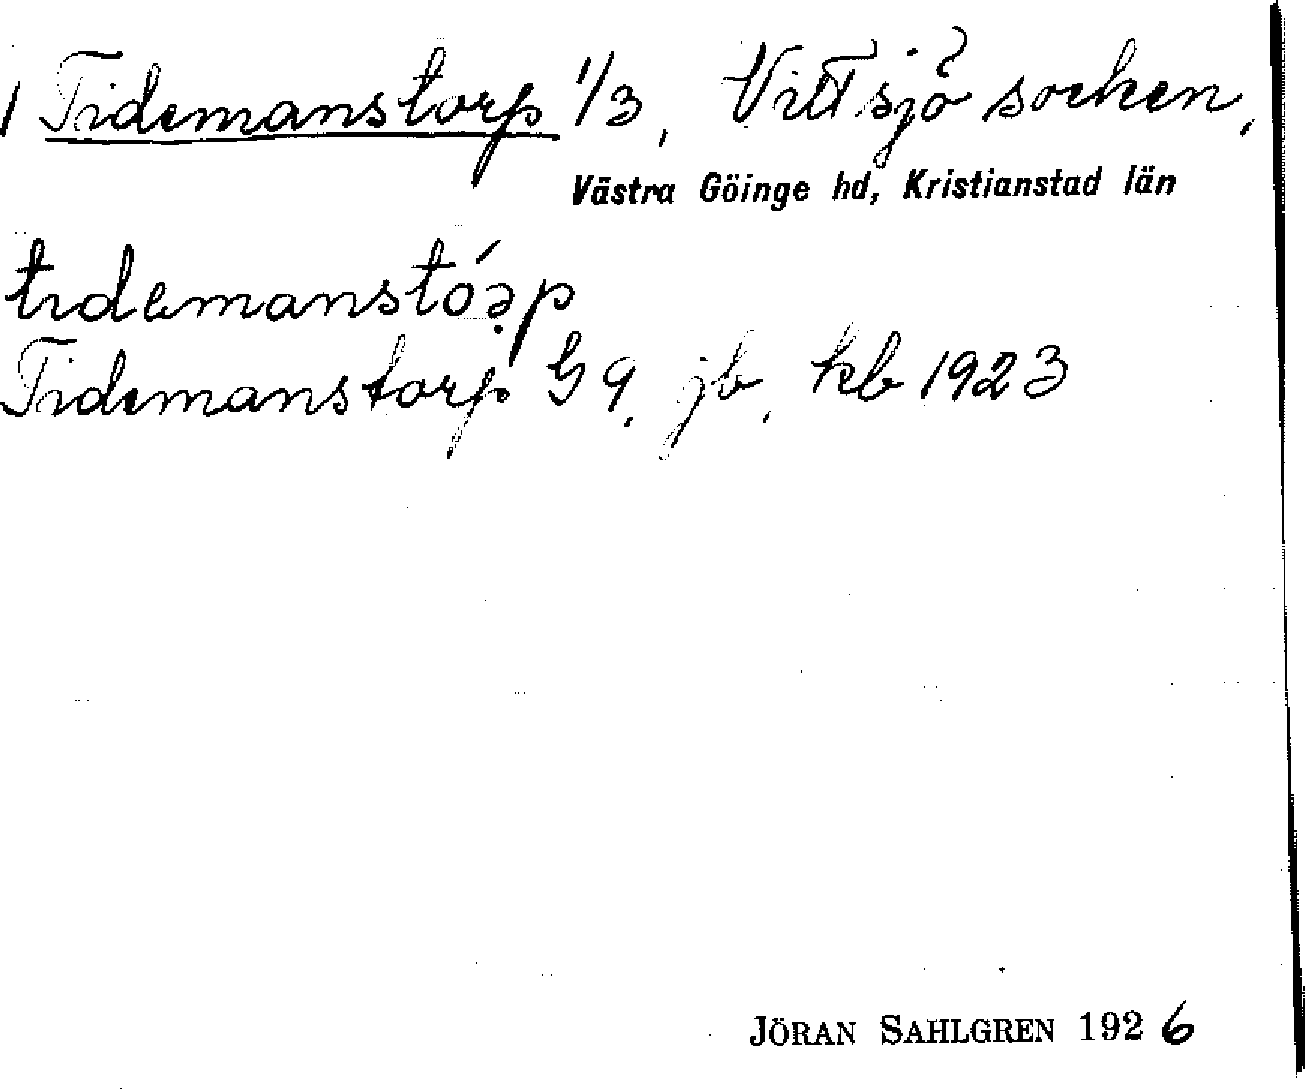 Tidemanstorp 1/3, Vittsjö socken,
Västra Göinge hd, Kristianstad län
tidemanstóə̣p
Tidemanstorp G 9, jb, kb 1923
JÖRAN SAHLGREN 1926